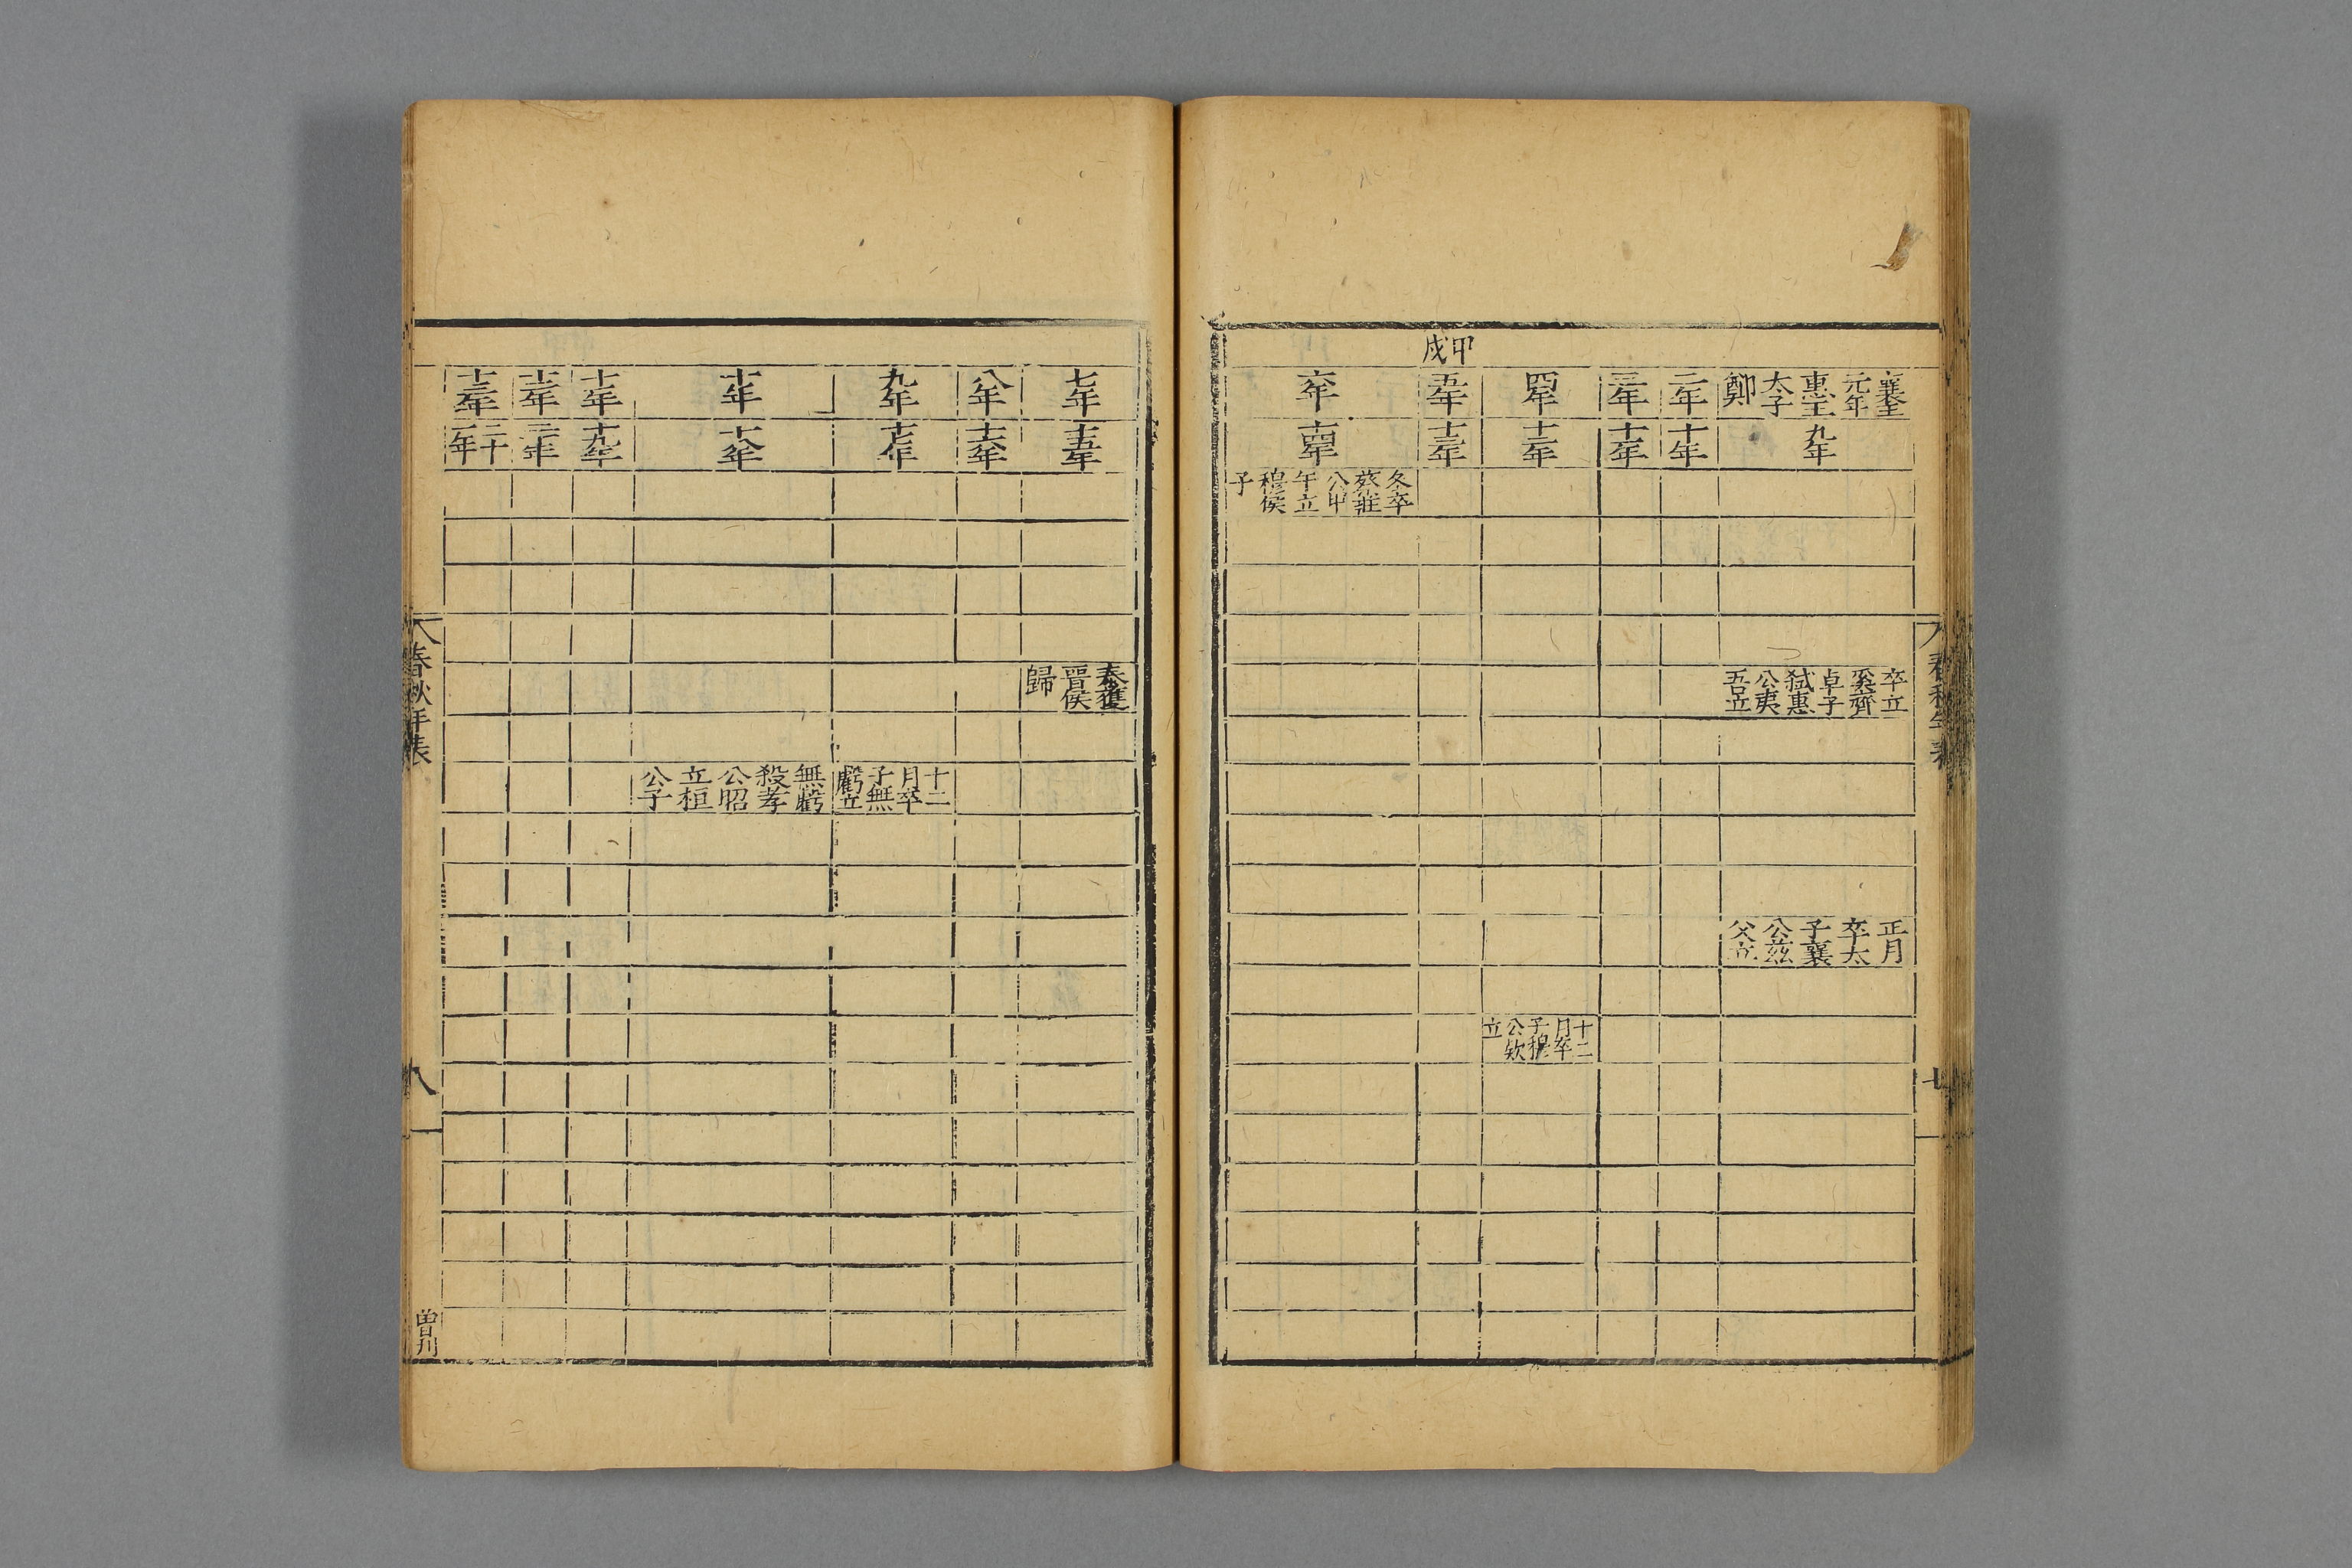 甲戌
襄王
元年
惠王
太子
鄭
二年
三年
四年
五年
六年
九年
十年
十一年
十二年
十三年
十四年
冬卒
蔡莊
公甲
午立
穆侯
子
卒立
奚齊
卓子
弑惠
公夷
吾立
正月
卒太
子襄
公茲
父立
十二
月卒
子穆
公欵
立
春秋年表
七
七年
八年
九年
十年
十一年
十二年
十三年
十五年
十六年
十七年
十八年
十九年
二十年
二十
一年
秦獲
晋侯
歸
十二
月卒
子無
虧立
無虧
殺孝
公昭
立桓
公子
春秋年表
八
曾刋